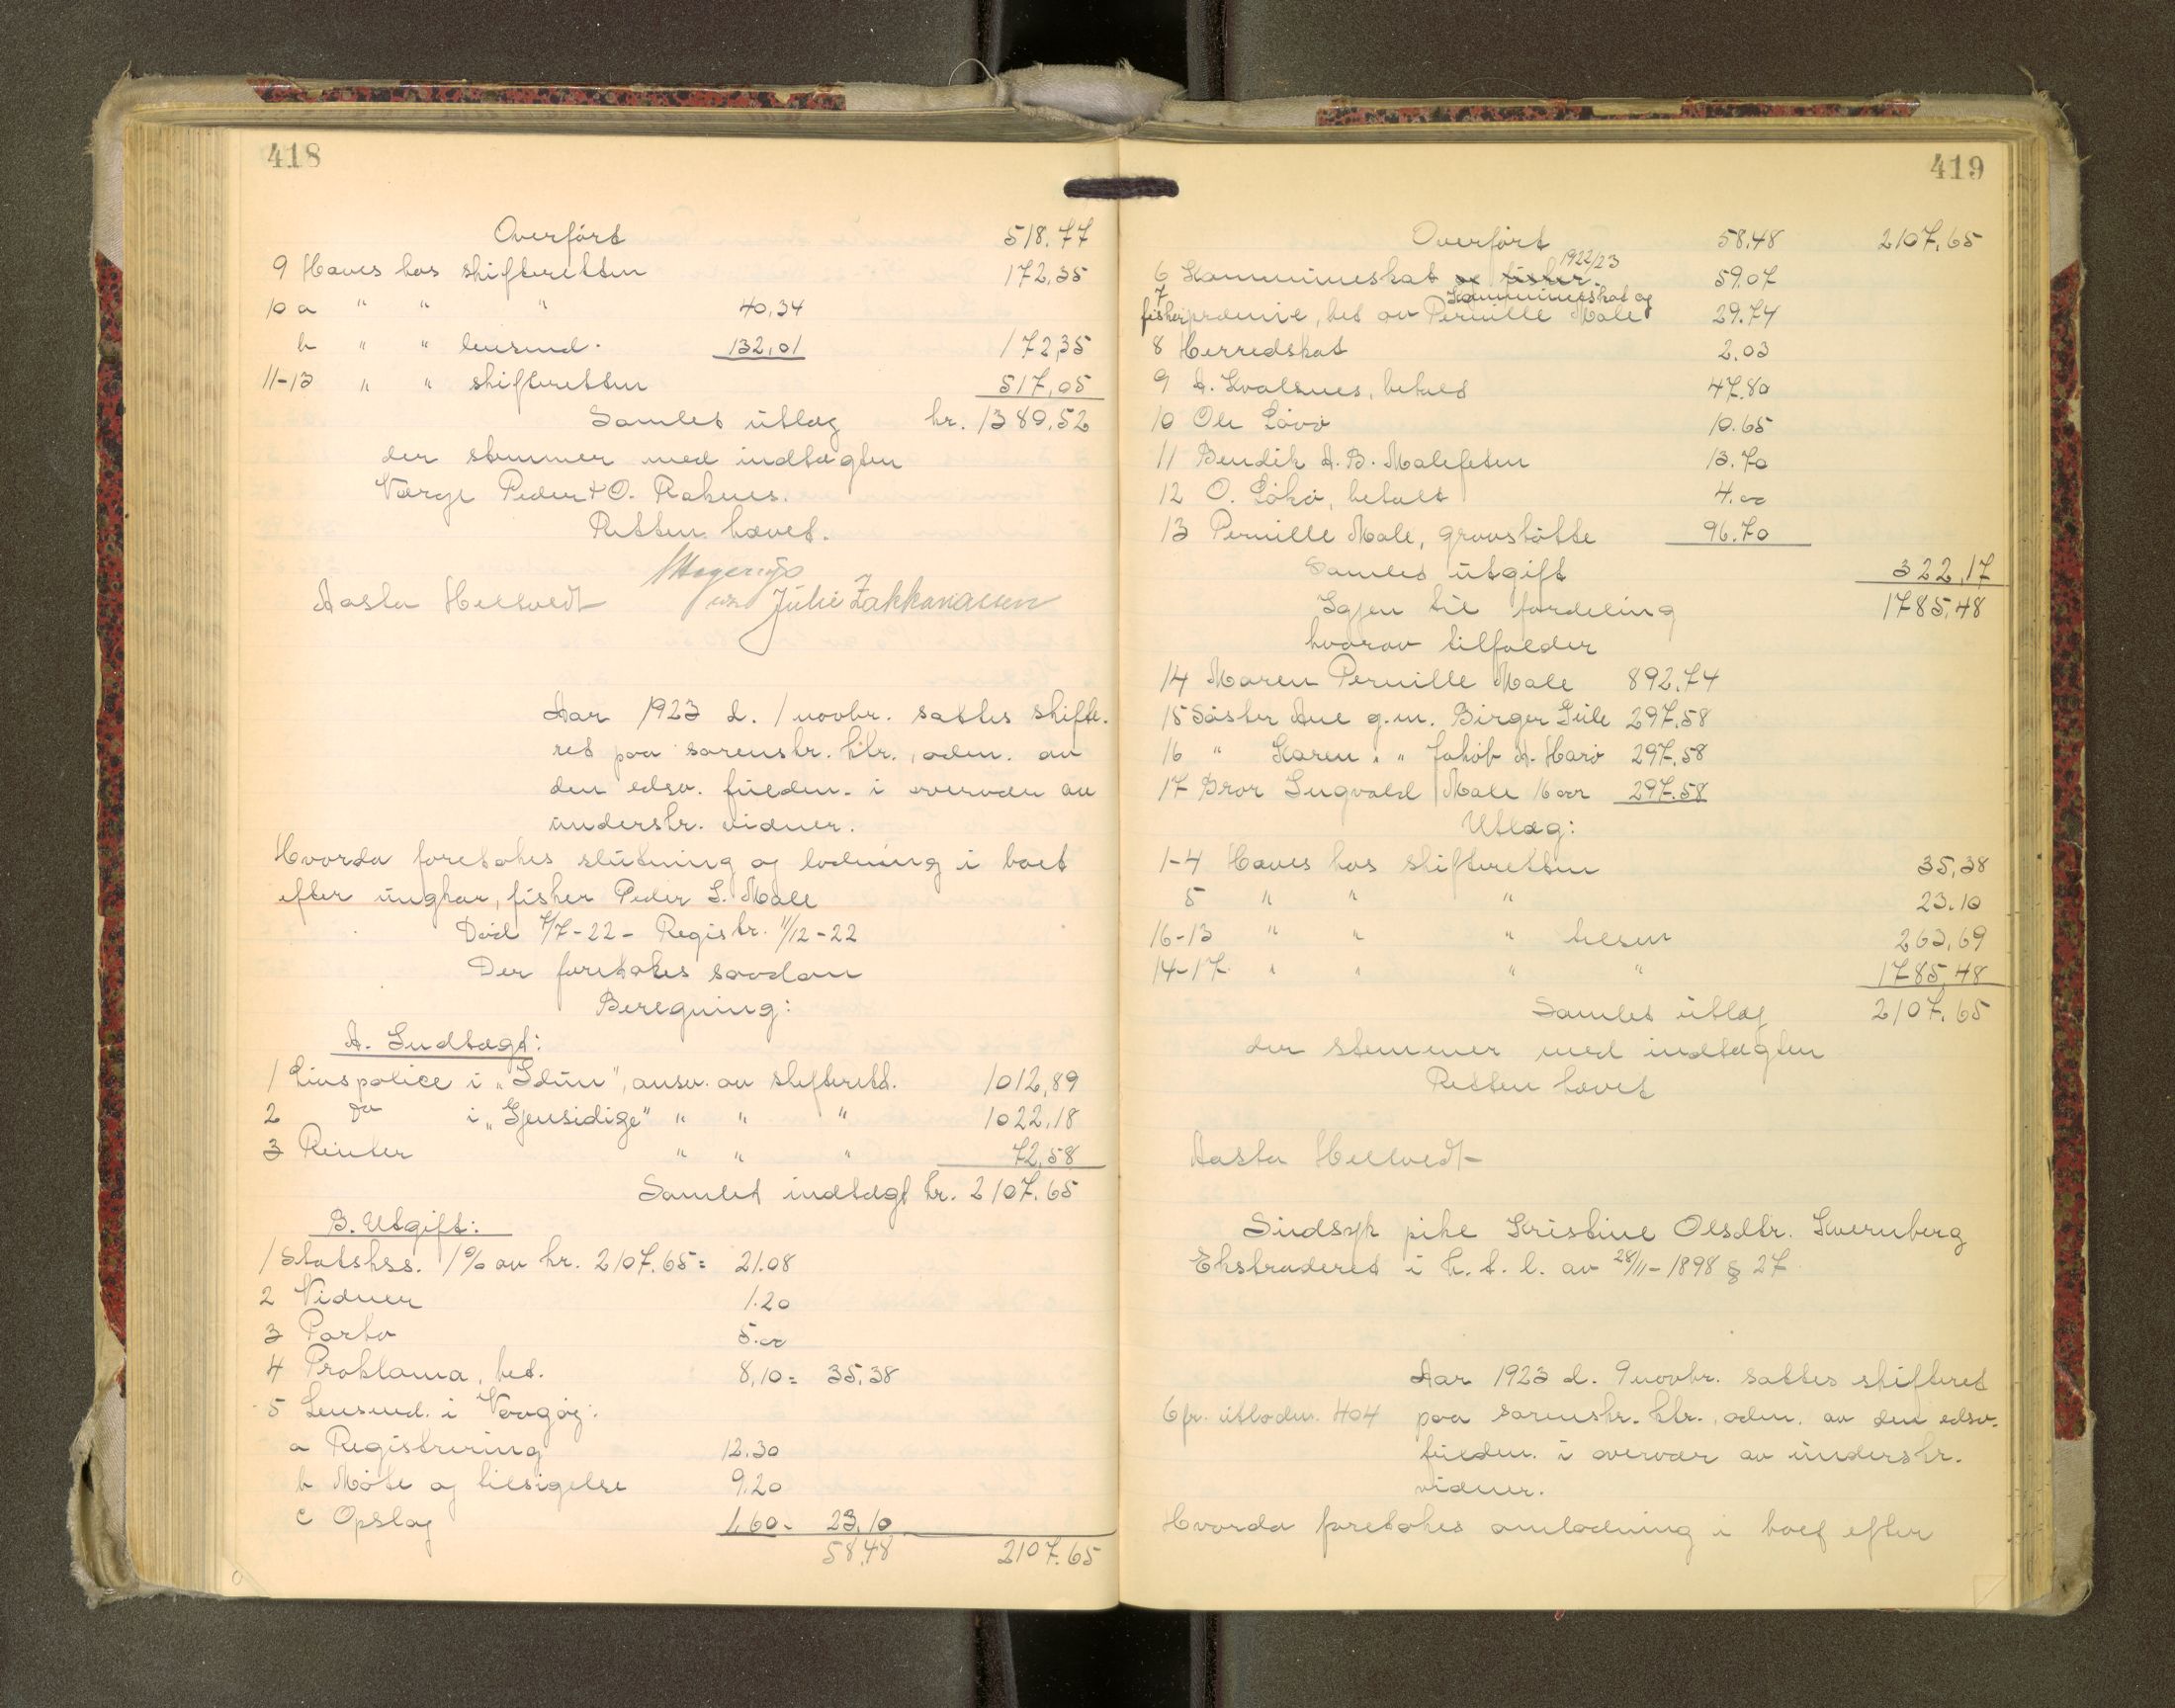 418
Overført 518.77
9 Haves hos skifteretten 172,35
10 a " " " 40,34
b " " lensmd. 132,01 172,35
11-13 " " skifteretten 517,05
Samlet utlæg kr. 1389,52
der stemmer med indtægten
Værge Peder O. Raknes.
Retten hævet.
Aasta Hellvedt Julie Zakkariassen
Aar 1923 d. 1 novbr. sattes skifte-
ret paa sorenskr. ktr., adm. av
den edsv. fuldm. i overvær av
underskr. vidner.
Hvorda foretokes slutning og lodning i boet
efter ungkar, fisker Peder I. Male
Død 7/7-22 - Registr. 11/12-22
Der foretokes saadan
Beregning:
A. Indtægt:
1 Livspolice i "Idun", ansv. av skifterett. 1012,89
2 do i "Gjensidige" " " " 1022,18
3 Renter " " " 72,58
Samlet indtægt kr. 2107.65
B. Utgift:
1 Statskss. 1% av kr. 2107.65 = 21.08
2 Vidner 1.20
3 Porto 5.00
4 Proklama, bet. 8,10 = 35,38
5 Lensmd. i Vaagøy:
a Registrering 12.30
b Møte og tilsigelse 9.20
c Opslag 1,60 - 23,10
58,48 2107.65
419
Overført 58,48 2107,65
6 Kommuneskat 1922/23 59.07
7 Kommuneskat og
fiskerpræmie, bet av Pernille Male 29.74
8 Herredskat 2.03
9 A. Kvalsnes, betalt 47.80
10 Ole Løvø 10.65
11 Bendik A. B. Malefeten 13.70
12 O. Løkø, betalt 4.00
13 Pernille Male, gravstøtte 96.70
Samlet utgift 322,17
Igjen til fordeling 1785,48
hvorav tilfalder
14 Maren Pernille Male 892.74
15 Søster Ane g.m. Birger Gule 297,58
16 " Karen " " Jakob A. Harø 297.58
17 Bror Ingvald Male 16 aar 297.58
Utlæg:
1-4 Haves hos skifteretten 35,38
5 " " " 23.10
16-13 " " " 263,69
14-17 " " " " 1785,48
Samlet utlæg 2107.65
der stemmer med indtægten
Retten hævet
Aasta Hellvedt
Sindsyk pike Kristine Olsdtr. Kvernberg
Ekstraderet i h. t. l. av 28/11-1898 § 27
Aar 1923 d. 9 novbr. sattes skifteret
Cfr. utlodn. 404 paa sorenskr. ktr., adm. av den edsv.
fuldm. i overvær av underskr.
vidner.
Hvorda foretokes omlodning i boet efter